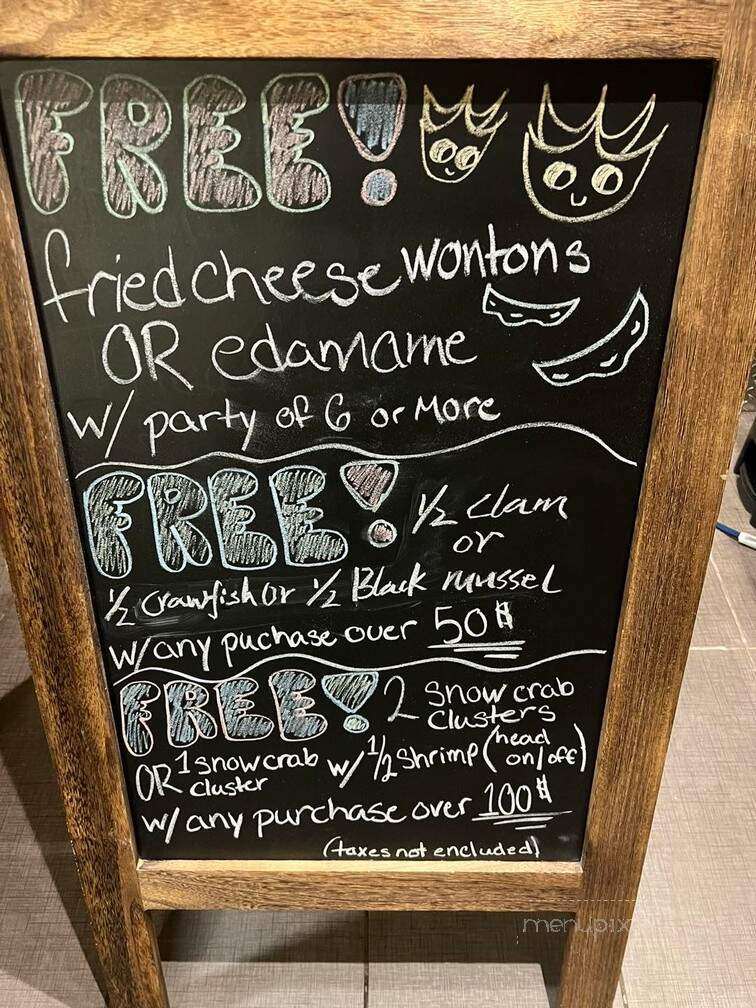 FREE!
fried cheese wontons
OR edamame
w/ party of 6 or More
FREE! 1/2 clam
or
1/2 crawfish or 1/2 Black mussel
w/any puchase over 50$
FREE! 2 snow crab
clusters
OR 1 snow crab cluster w/ 1/2 shrimp (head on/off)
w/ any purchase over 100$
(taxes not encluded)
menupix